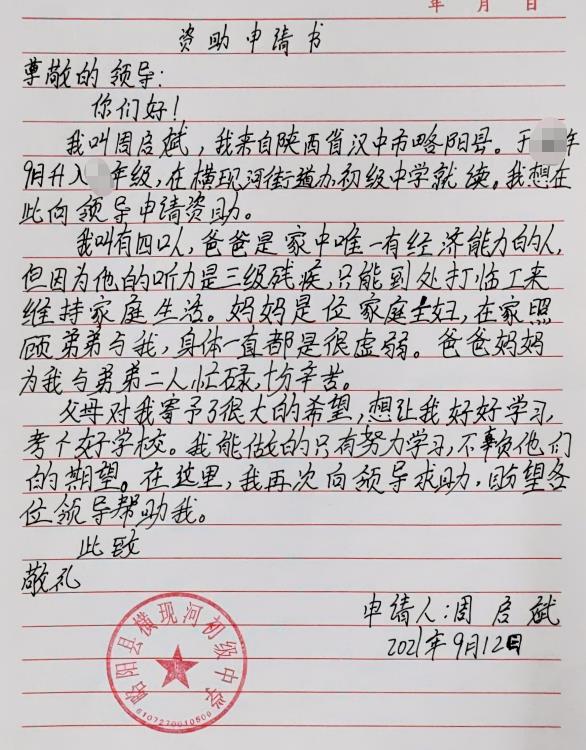 年 月 日
资助申请书
尊敬的领导:
你们好!
我叫周启斌,我来自陕西省汉中市略阳县。于年
9月升入年级,在横现河街道办初级中学就续。我想在
此向领导申请资助。
我叫有四口人,爸爸是家中唯一有经济能力的人,
但因为他的听力是三级残疾,只能到处打临工来
维持家庭生活。妈妈是位家庭主妇,在家照
顾弟弟与我,身体一直都是很虚弱。爸爸妈妈
为我与弟弟二人忙碌,十分辛苦。
父母对我寄予了很大的希望,想让我好好学习,
考个好学校。我能做的只有努力学习,不辜负他们
的期望。在这里,我再次向领导求助,盼望各
位领导帮助我。
此致
敬礼
申请人:周启斌
2021年9月12日
略阳县横现河初级中学
6107270010500